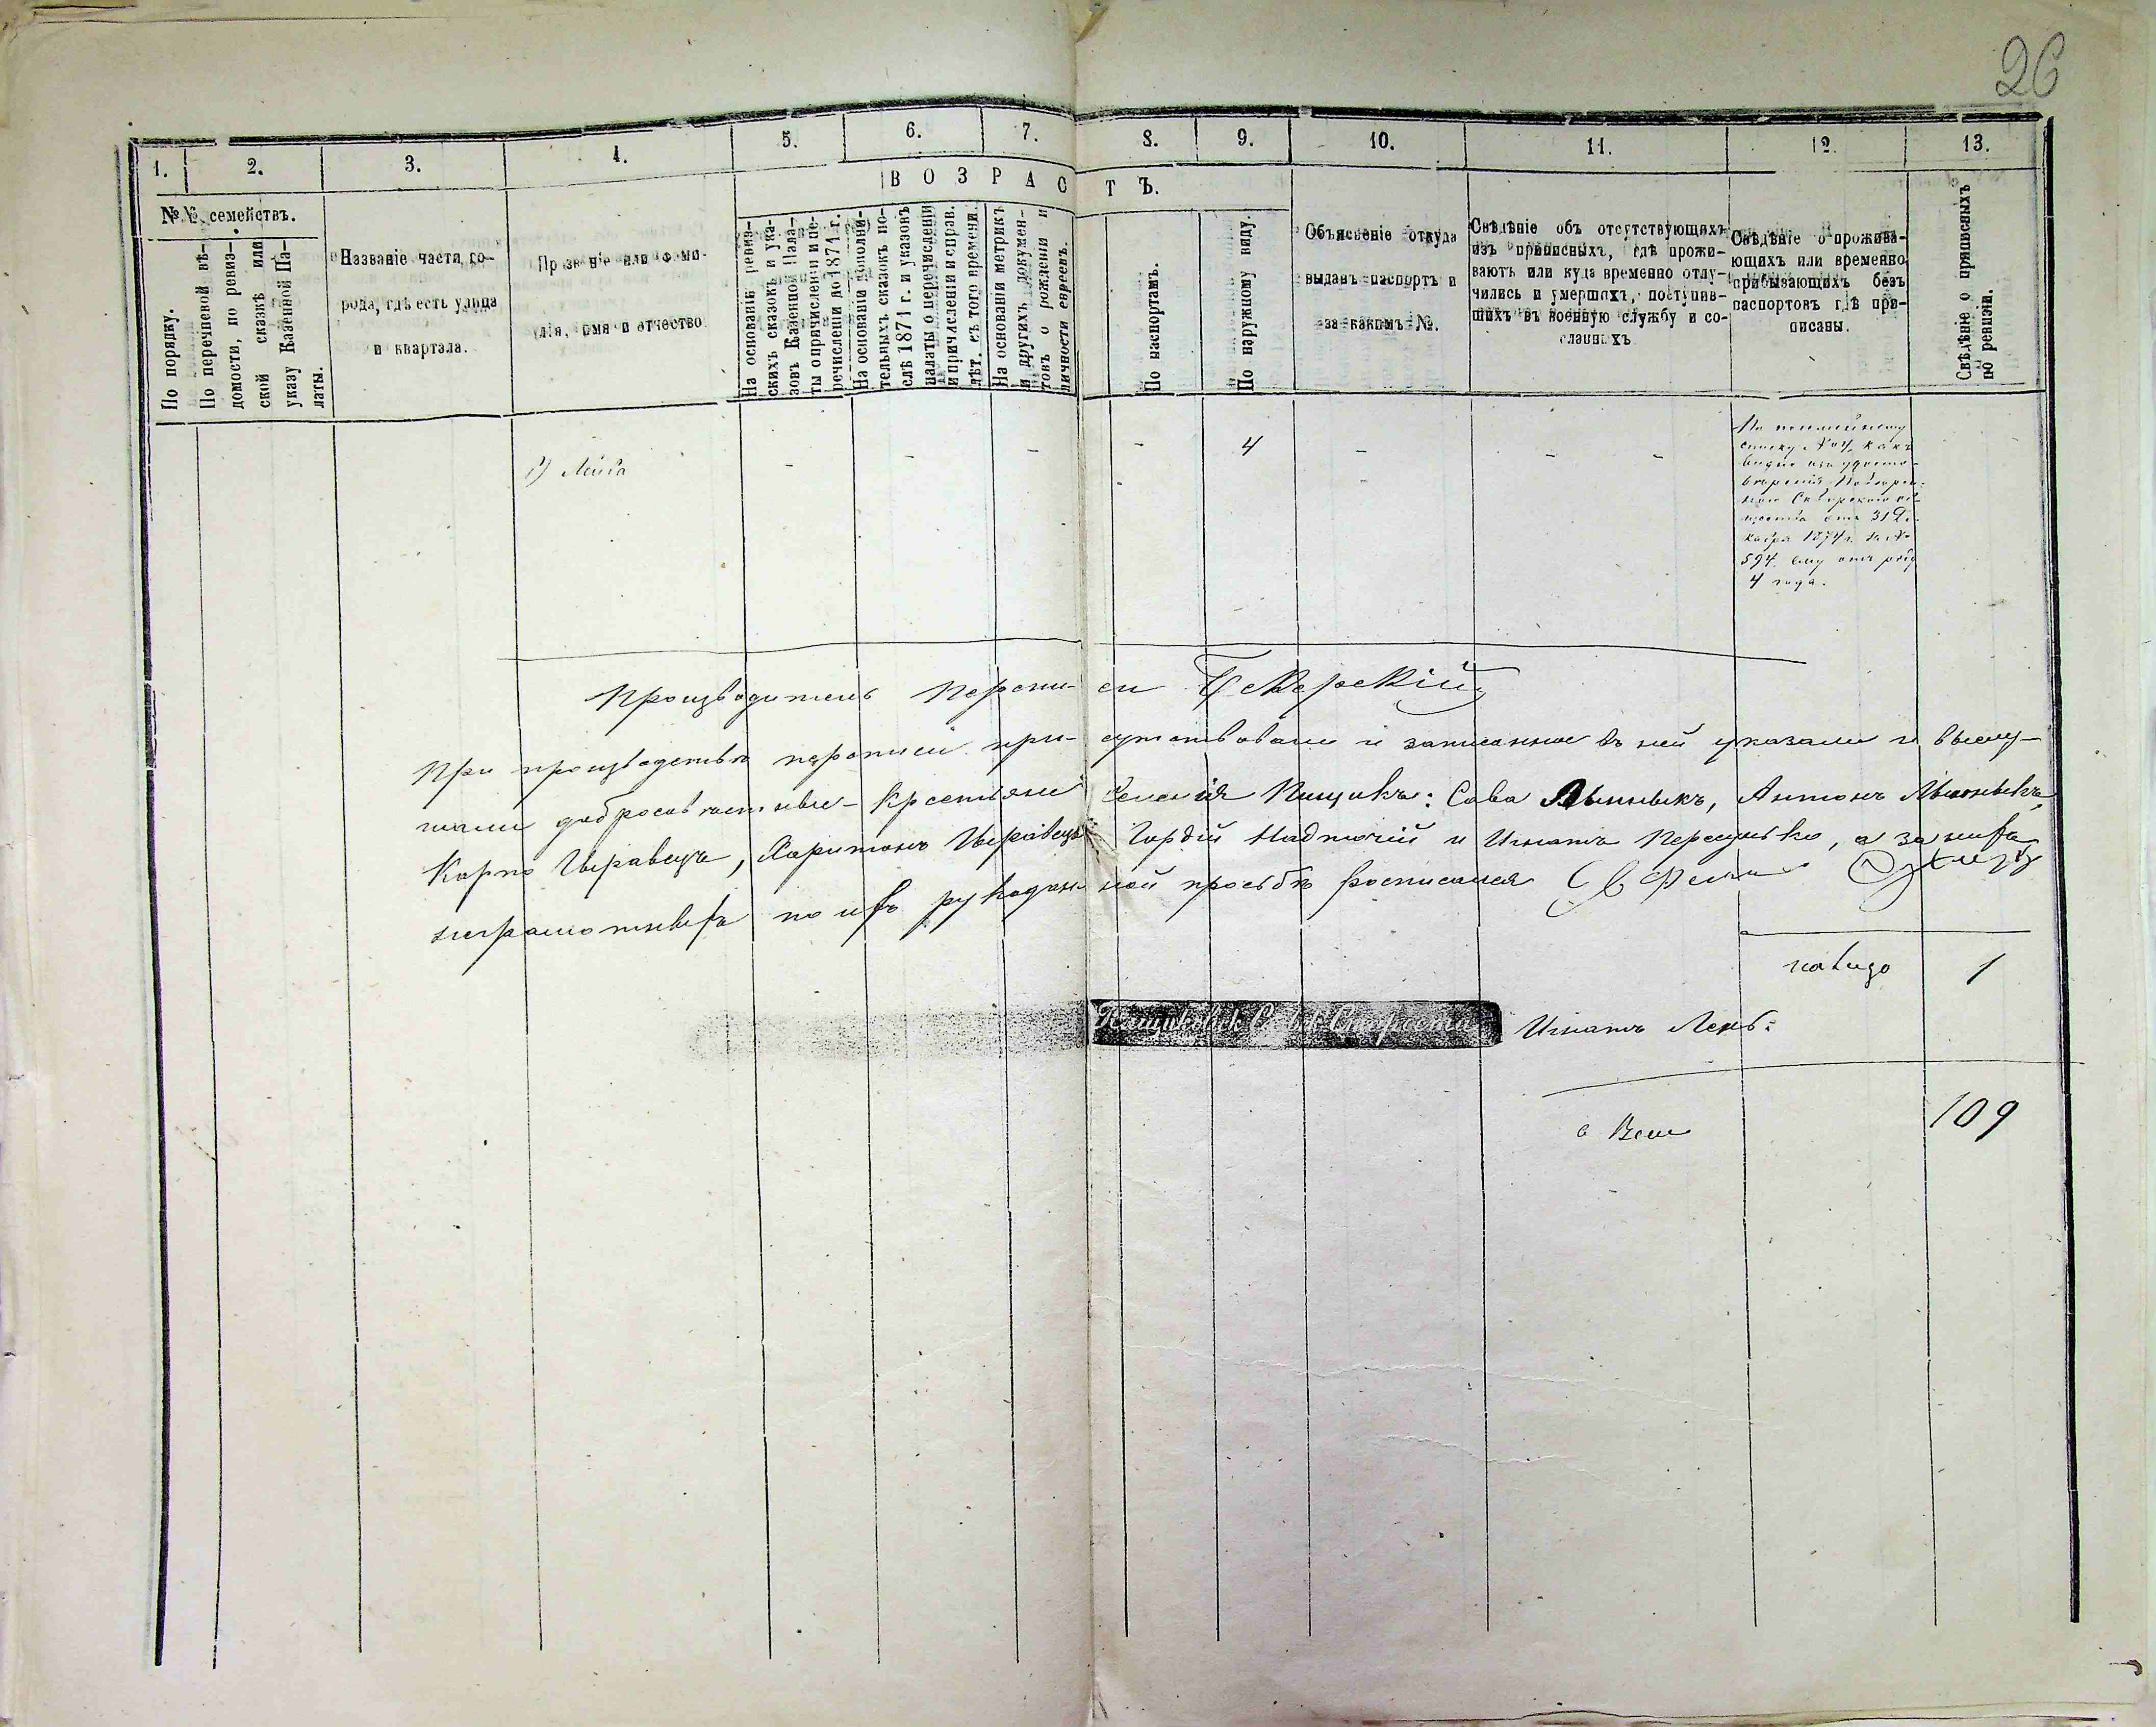 26
1.
2.
3.
4.
5.
6.
7.
8.
9.
10.
11.
12.
13.
ВОЗРАСТЪ.
№№ семействъ.
По порядку.
По перечневой вѣ-
домости, по ревиз-
ской сказкѣ или
указу Казенной Па-
латы.
Названіе части го-
рода, гдѣ есть улица
и квартала.
Прозваніе или фами-
лія, имя и отчество
На основаніи ревиз-
скихъ сказокъ и ука-
зовъ Казенной Пала-
ты о причисленіи и пе-
речисленіи до 1871 г.
На основаніи дополни-
тельныхъ сказокъ по-
слѣ 1871 г. и указовъ
палаты о перечисленіи
и причисленіи и справ.
лѣт. съ того времени.
На основаніи метрикъ
и другихъ докумен-
товъ о рожденіи и
личности евреевъ.
По паспортамъ.
По наружному виду.
Объясненіе откуда
выданъ паспортъ и
за какимъ №.
Свѣдѣніе объ отсутствующихъ
изъ приписныхъ, гдѣ прожи-
ваютъ или куда временно отлу-
чились и умершихъ, поступив-
шихъ въ военную службу и со-
сланныхъ
Свѣдѣніе о прожива-
ющихъ или временно
прибывающихъ безъ
паспортовъ гдѣ при-
писаны.
Свѣдѣніе о приписныхъ
по ревизіи.
1) Лейба - - - - 4 - - -
По посемейному
списку № 4, какъ
видно изъ удосто-
вѣренія
Сквирскаго об-
щества отъ 31 Де-
кабря 1874 г. за №
594. ему отъ роду
4 года.
Производитель Переписи
При производствѣ переписи присутствовали и записанное въ ней указали и выслу-
шали добросовѣстные - Крестьяне Селенія Пищикъ: Сава Антонъ
Карпо Харитонъ Гордій Надточій и Игнатъ а за нихъ
неграмотныхъ по ихъ рукоданной просьбѣ росписался
1
Сельск Староста Игнатъ Лень:
а Всего 109